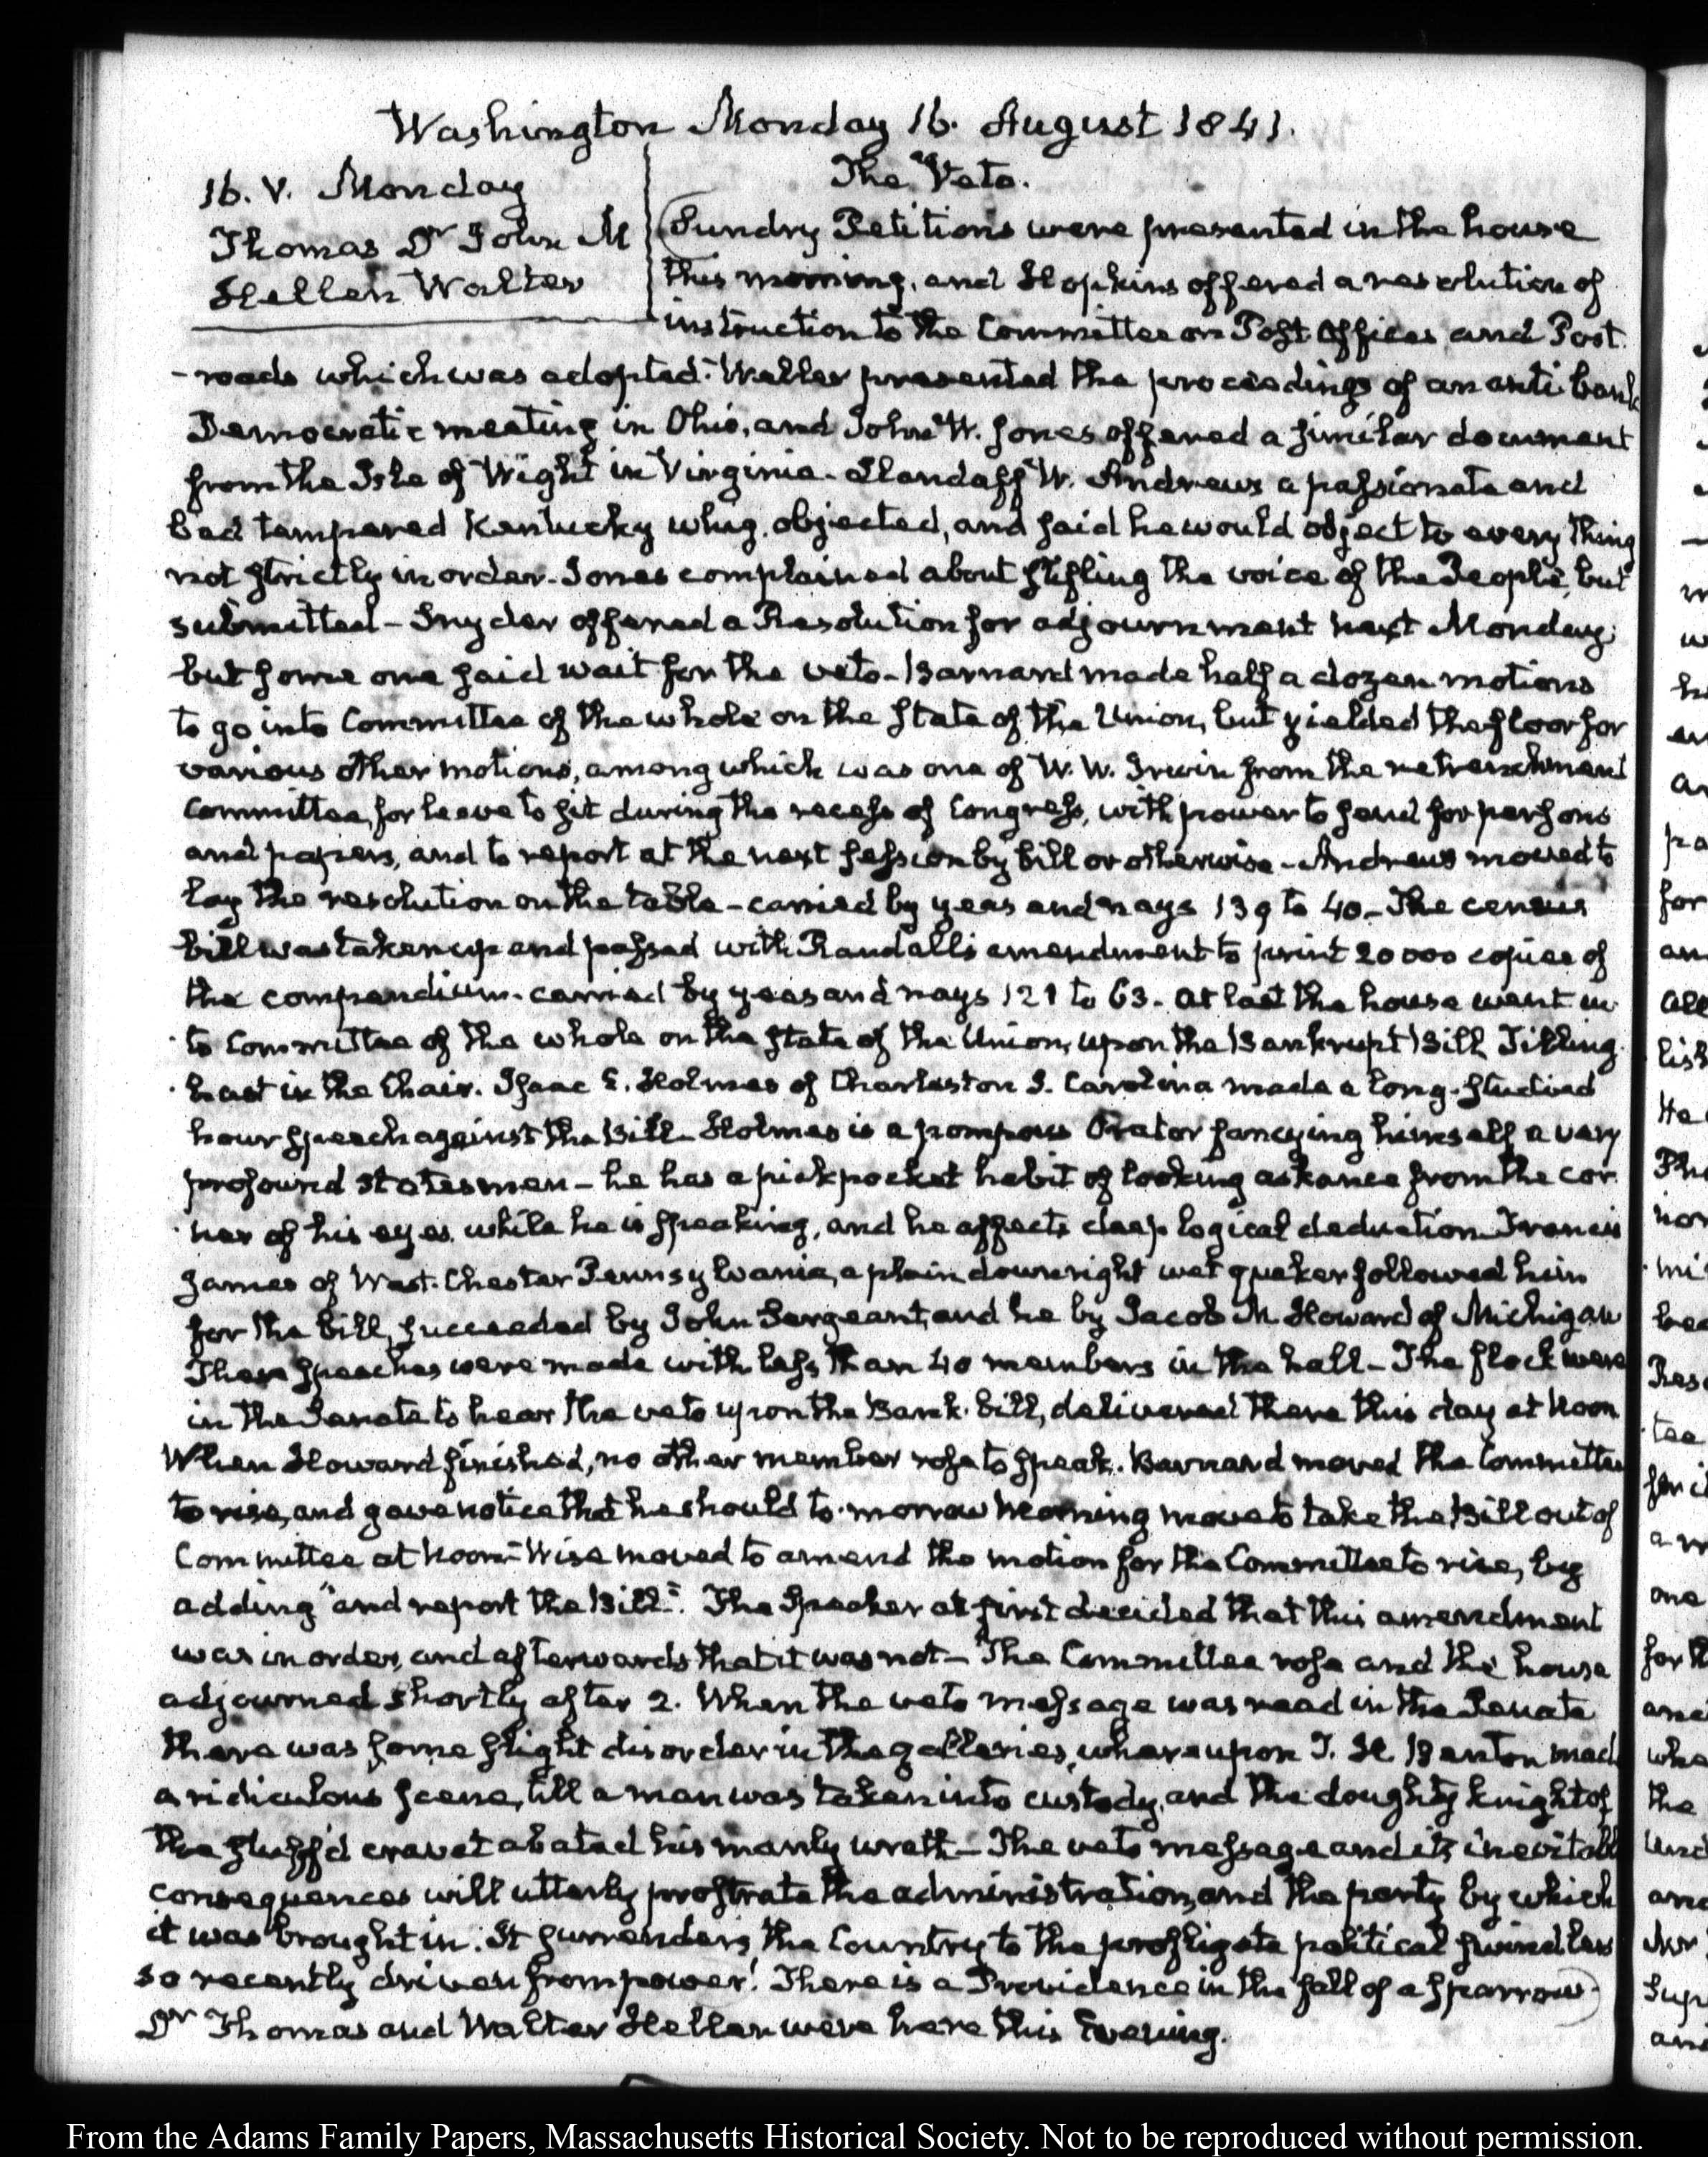 Washington Monday 16. August 1841.
16. V. Monday
Thomas Dr John M
Hellen Walter
The Veto.
Sundry Petitions were presented in the house
this morning, and Hopkins offered a resolution of
instruction to the Committee on Post Offices and Post
-roads which was adopted. Weller presented the proceedings of an anti bank
Democratic meeting in Ohio, and John W. Jones offered a similar document
from the Isle of Wight in Virginia. Landaff W. Andrews a passionate and
bad tempered Kentucky whig, objected, and said he would object to every thing
not strictly in order. Jones complained about stifling the voice of the People, but
submitted - Snyder offered a Resolution for adjournment next Monday;
but some one said wait for the veto - Barnard made half a dozen motions
to go into Committee of the whole on the State of the Union, but yielded the floor for
various other motions, among which was one of W. W. Irwin from the retrenchment
Committee, for leave to sit during the recess of Congress, with power to send for persons
and papers, and to report at the next session by bill or otherwise - Andrews moved to
lay the resolution on the table - carried by yeas and nays 139 to 40 - The census
bill was taken up and passed with Randall's amendment to print 20000 copies of
the compendium. carried by yeas and nays 121 to 63. at last the house went in
to Committee of the whole on the State of the Union, upon the Bankrupt Bill Tilling
hast in the Chair. Isaac E. Holmes of Charleston S. Carolina made a long-studied
hour speech against the Bill - Holmes is a pompous Orator fancying himself a very
profound statesman - he has a pickpocket habit of looking askance from the cor
ner of his eyes while he is speaking, and he affects deep logical deduction. Francis
James of West-Chester Pennsylvania, a plain downright wet quaker followed him
for the bill, succeeded by John Sergeant, and he by Jacob M. Howard of Michigan
These speeches were made with less than 40 members in the hall - The flock were
in the Senate to hear the veto upon the Bank-bill, delivered there this day at Noon.
When Howard finished, no other member rose to speak. Barnard moved the Committee
to rise, and gave notice that he should to-morrow Morning move to take the Bill out of
Committee at Noon - Wise moved to amend the motion for the Committee to rise, by
adding "and report the Bill". The Speaker at first decided that this amendment
was in order, and afterwards that it was not - The Committee rose and the house
adjourned shortly after 2. When the veto message was read in the Senate
there was some slight disorder in the galleries, whereupon T. H. Benton made
a ridiculous scene, till a man was taken into custody, and the doughty knight of
the stuff'd cravat abated his manly wrath - The veto message and its inevitable
consequences will utterly prostrate the administration, and the party by which
it was brought in. It surrenders the Country to the profligate political swindlers
so recently driven from power! There is a Providence in the fall of a sparrow.
Dr Thomas and Walter Hellen were here this Evening.
From the Adams Family Papers, Massachusetts Historical Society. Not to be reproduced without permission.